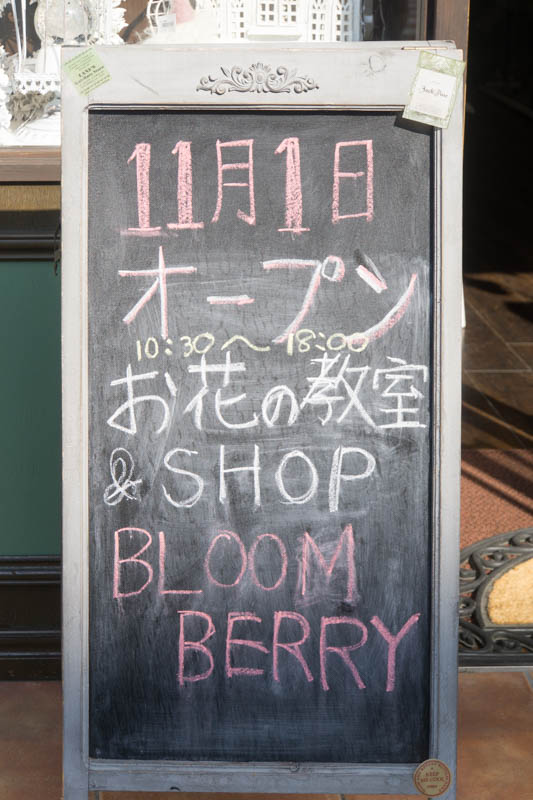 11月1日
オープン
10:30～18:00
お花の教室
& SHOP
BLOOM
BERRY